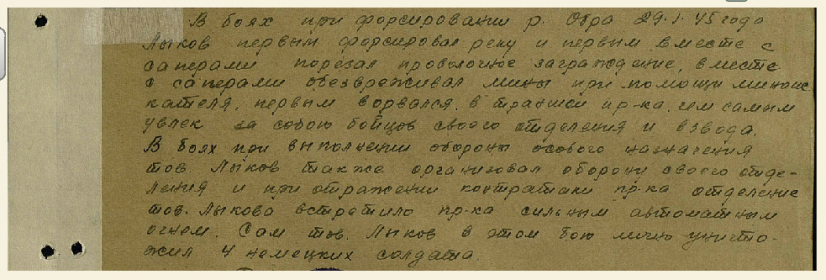 В боях при форсировании р. Обра 29.1.45 года
Лыков первым форсировал реку и первым вместе с
саперами порезал проволочное заграждение, вместе
с саперами обезвреживал мины при помощи миноис
кателя, первым ворвался в траншеи пр-ка, чем самым
увлек за собою бойцов своего отделения и взвода.
В боях при выполнении обороны особого назначения
тов. Лыков также организовал оборону своего отде-
ления и при отражении контратаки пр-ка отделение
тов. Лыкова встретило пр-ка сильным автоматным
огнем. Сам тов. Лыков в этом бою лично уничто-
жил 4 немецких солдата.